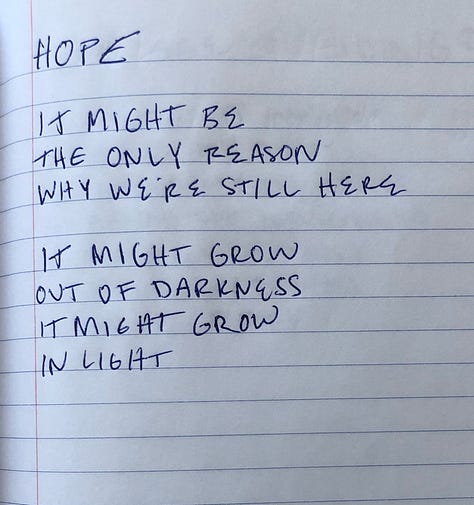 HOPE
IT MIGHT BE
THE ONLY REASON
WHY WE'RE STILL HERE
IT MIGHT GROW
OUT OF DARKNESS
IT MIGHT GROW
IN LIGHT